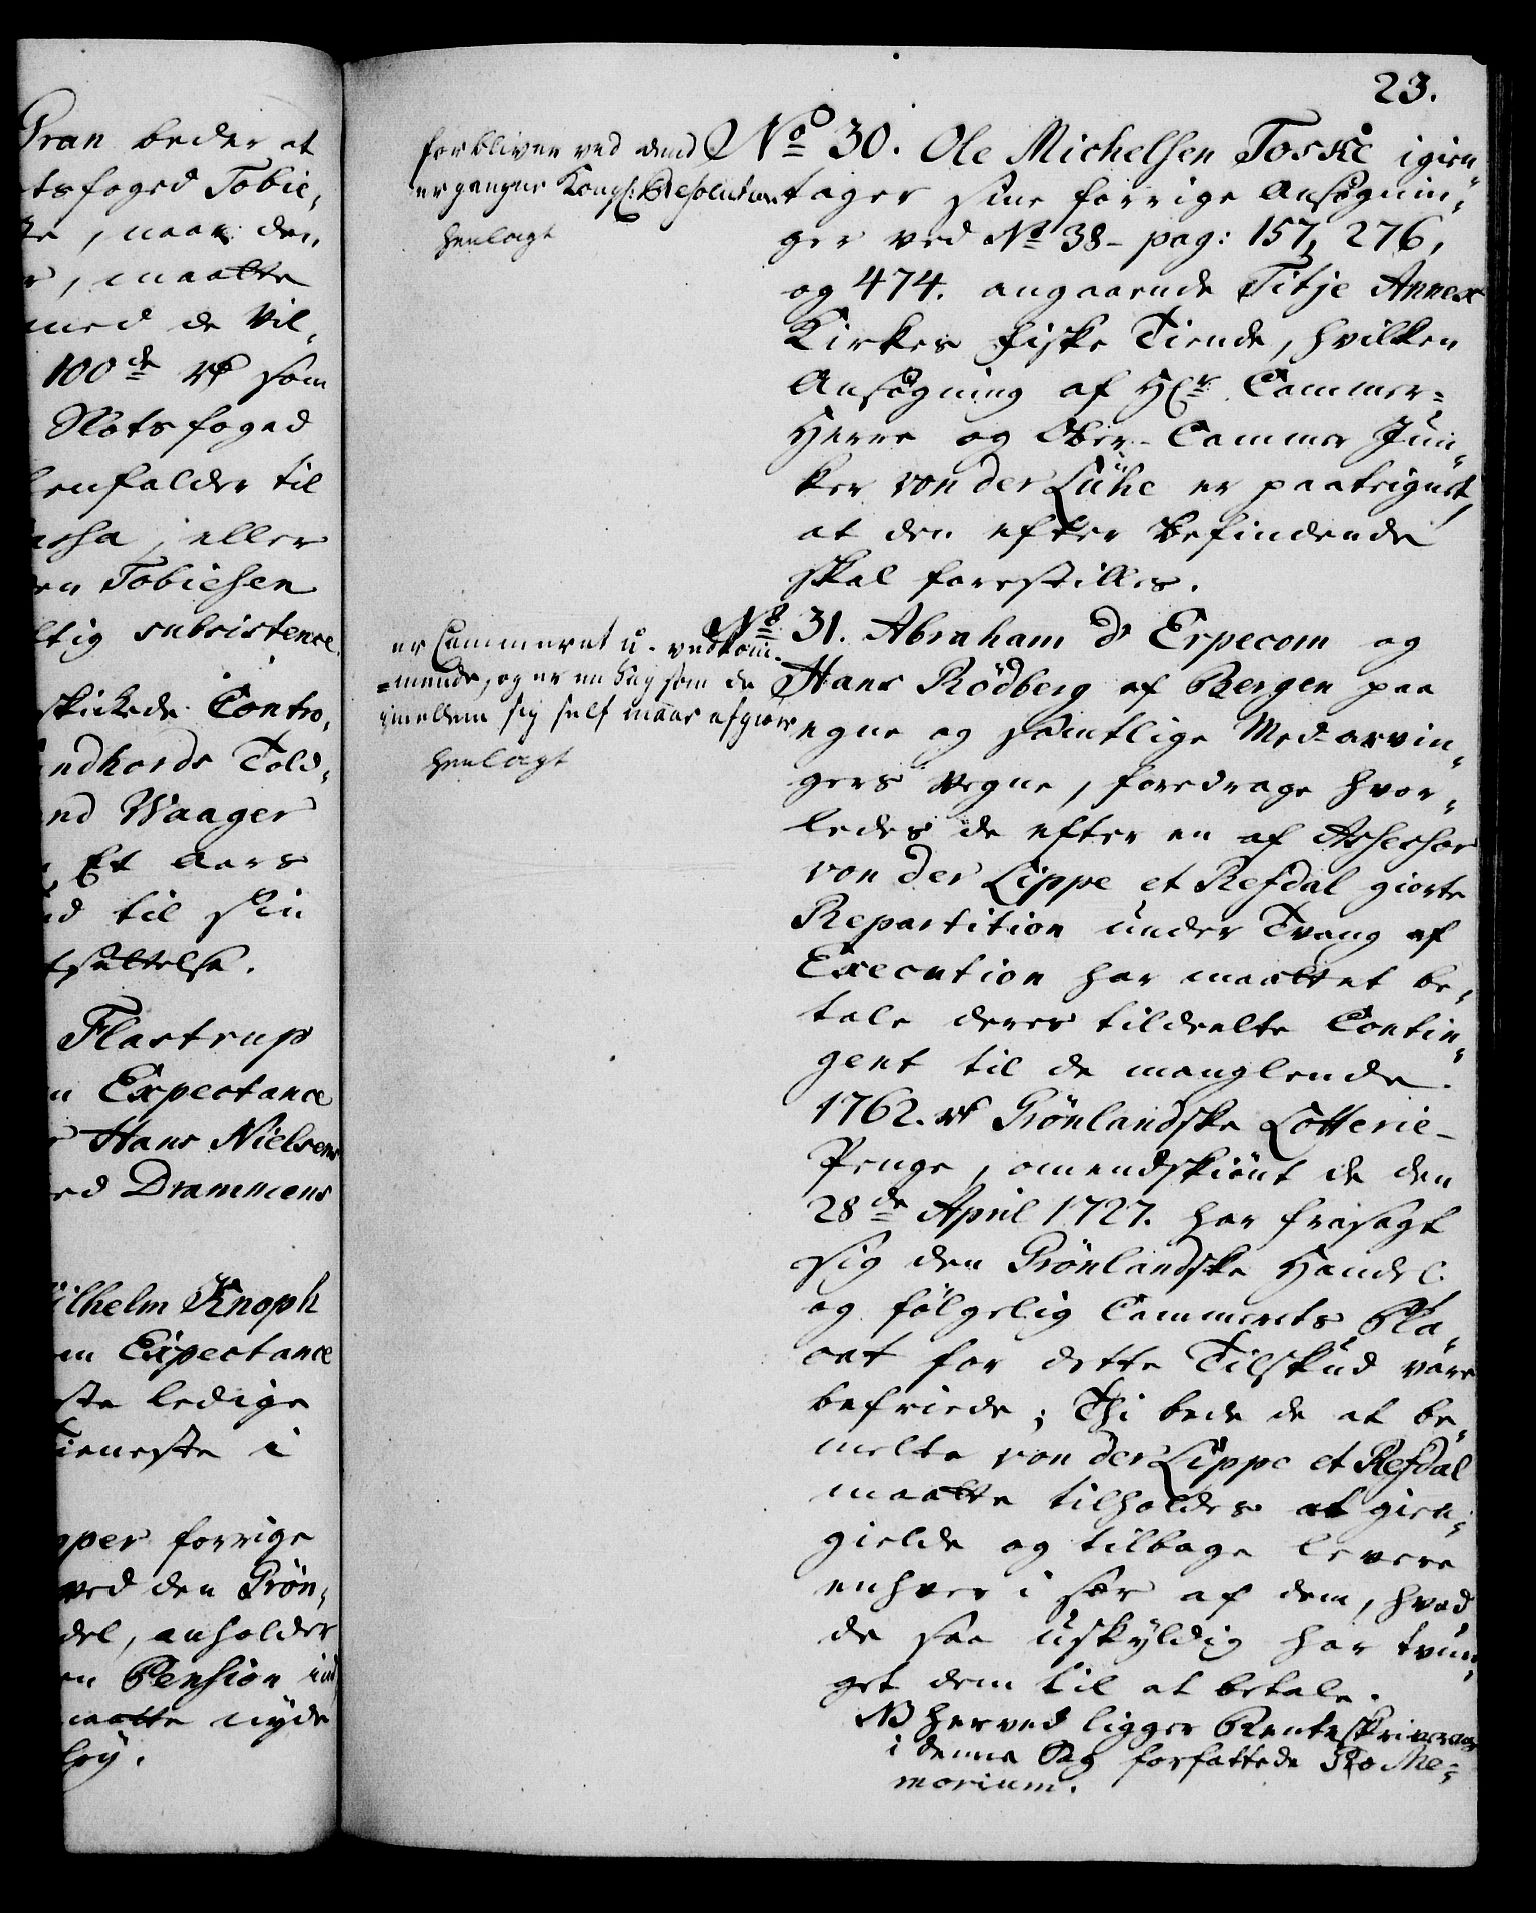 Gran beder at
tsfoged Tobie,
te, naar den
r, maatte
med de vil,
100de rd som
Slotsfoged
henfalder til
assa, eller
en Tobiesen
ltig subsistence.
skickede Contro,
indhords Told,
nd Waager
Et Aars
d til sin
tsættelse.
Flastrup
n Expectance
r Hans Nielsens
ed Drammens
ilhelm Knoph
en Expectance
ste ledige
Tieneste i
pper forrige
ved den Grön,
del, anholder
en Pension
maatte nyde
23.
forbliver ved dend
ergangne Kongl: Resolution
henlagt
No 30. Ole Michelsen Toske igien,
tager sine forrige Ansøgnin,
ger ved No 38- pag: 157, 276,
og 474. angaaende Titje Annex
Kirkes Fiske Tiende, hvilken
Ansøgning af Hr Cammer=
Herre og Ober-Cammer Jun,
ker von der Lühe er paategnet,
at den efter befindende
skal forestilles.
er Cammeret u-vedkom-
=mende, og er en Sag som de
imellem sig self maae afgiøre
henlagt
No 31. Abraham d' Erpecom og
Hans Rödberg af Bergen paa
egne og samtlige Medarvin,
gers vegne, foredrage hvor,
ledes de efter en af Assessor
von der Lippe et Refdal giorte
Repartition under Tvang af
Execution har maattet be,
tale deres tildeelte Contin,
gent til de manglende
1762. rd Grönlandske Lotterie-
Penge, omendskiönt de den
28de April 1727. har frasagt
sig den Grönlandske Handel
og fölgelig Cammerets Pla,
cat for dette Tilskud vare
befriede; Thi bede de at be,
melte von der Lippe et Refdal
maatte tilholdes at gien,
gielde og tilbage levere
enhver i sær af dem, hvad
de saa uskyldig har tvun,
get dem til at betale.
NB herved ligger Renteskriverens
i denne Sag forfattede Pro Me=
morium.